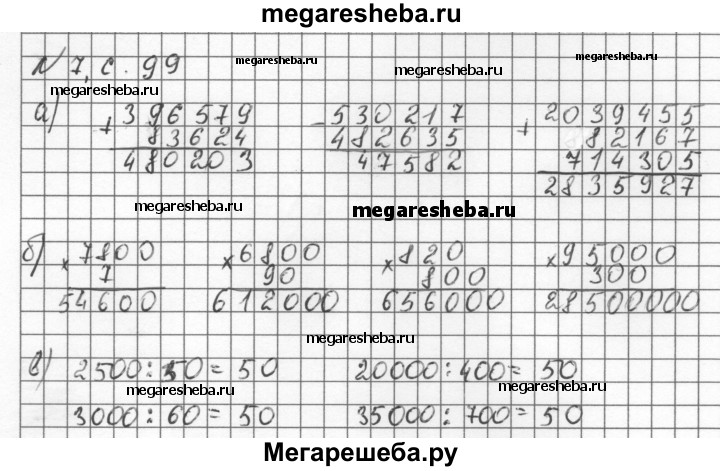 megaresheba.ru
N 7, с. 99
megaresheba.ru megaresheba.ru megaresheba.ru
megaresheba.ru
а) + 396 579 - 530 217 + 2039455
83624 482635 82167
480203 47582 714305
2835927
megaresheba.ru megaresheba.ru
б) × 7800 × 6800 × 820 × 95000
7 90 800 300
54600 612000 656000 28500000
megaresheba.ru
в) 2500 : 50 = 50 20000 : 400 = 50
megaresheba.ru megaresheba.ru
3000 : 60 = 50 35000 : 700 = 50
Мегарешеба.ру